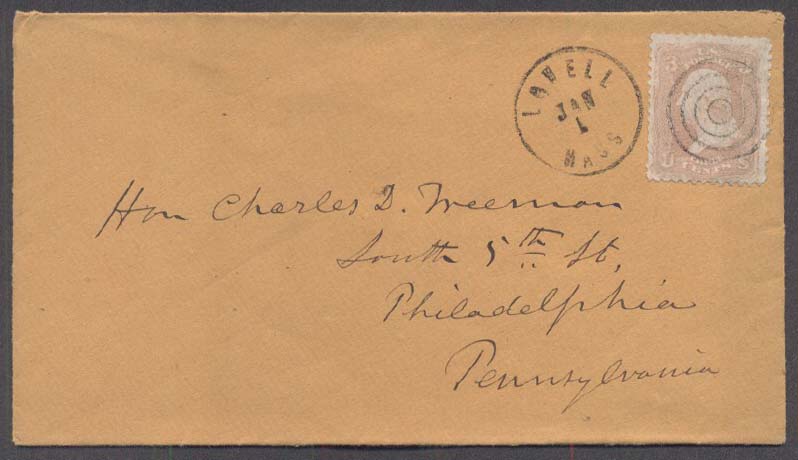 LOWELL
JAN
1
MASS
3 3
U CENTS S
Hon Charles D. Freeman
South 5th St,
Philadelphia
Pennsylvania